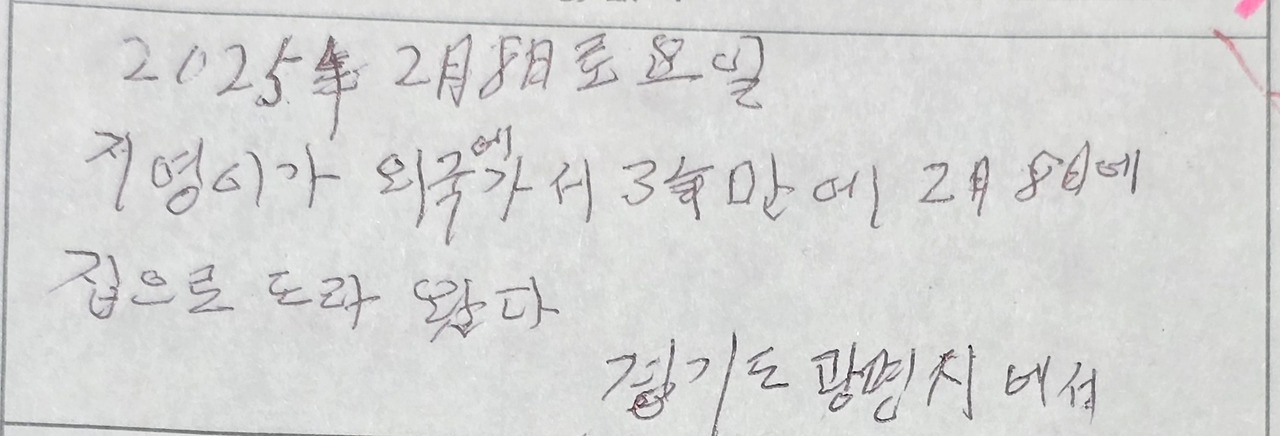 2025年 2月 8日 토요일
지영이가 외국에가서 3年만에 2月 8日에
집으로 도라 왔다
경기도 광명시에서